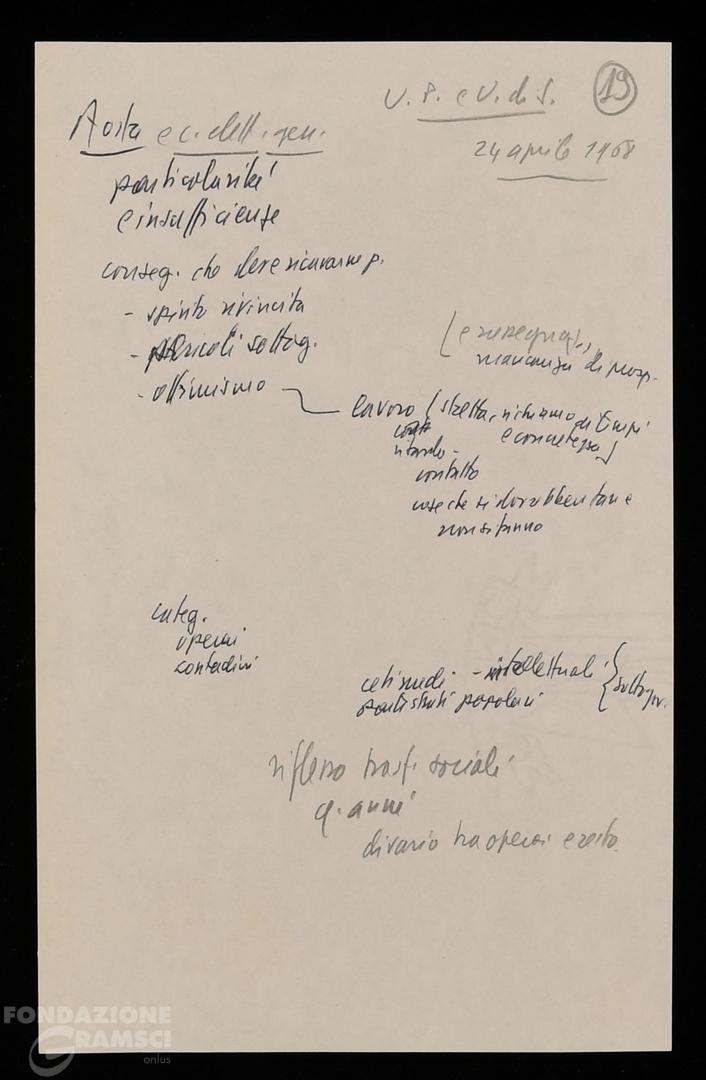 U.P. e U. di S. 19
24 aprile 1968
Aosta e c. dell. gen.
particolarità
e insufficienze
conseg. che deve ricavarne p.
- spirito rivincita
- pericoli sottog.
- ottimismo
(e rassegnaz.,
mancanza di prosp.
lavoro (stretta, richiamo ai tempi
e concretezza)
ritardo -
contatto
cose che si dovrebbero fare e
non si fanno
categ.
operai
contadini
ceti medi - intellettuali
strati popolari
sottogov.
riflesso trasf. sociali
q. anni
divario tra operai e resto
FONDAZIONE
GRAMSCI
onlus